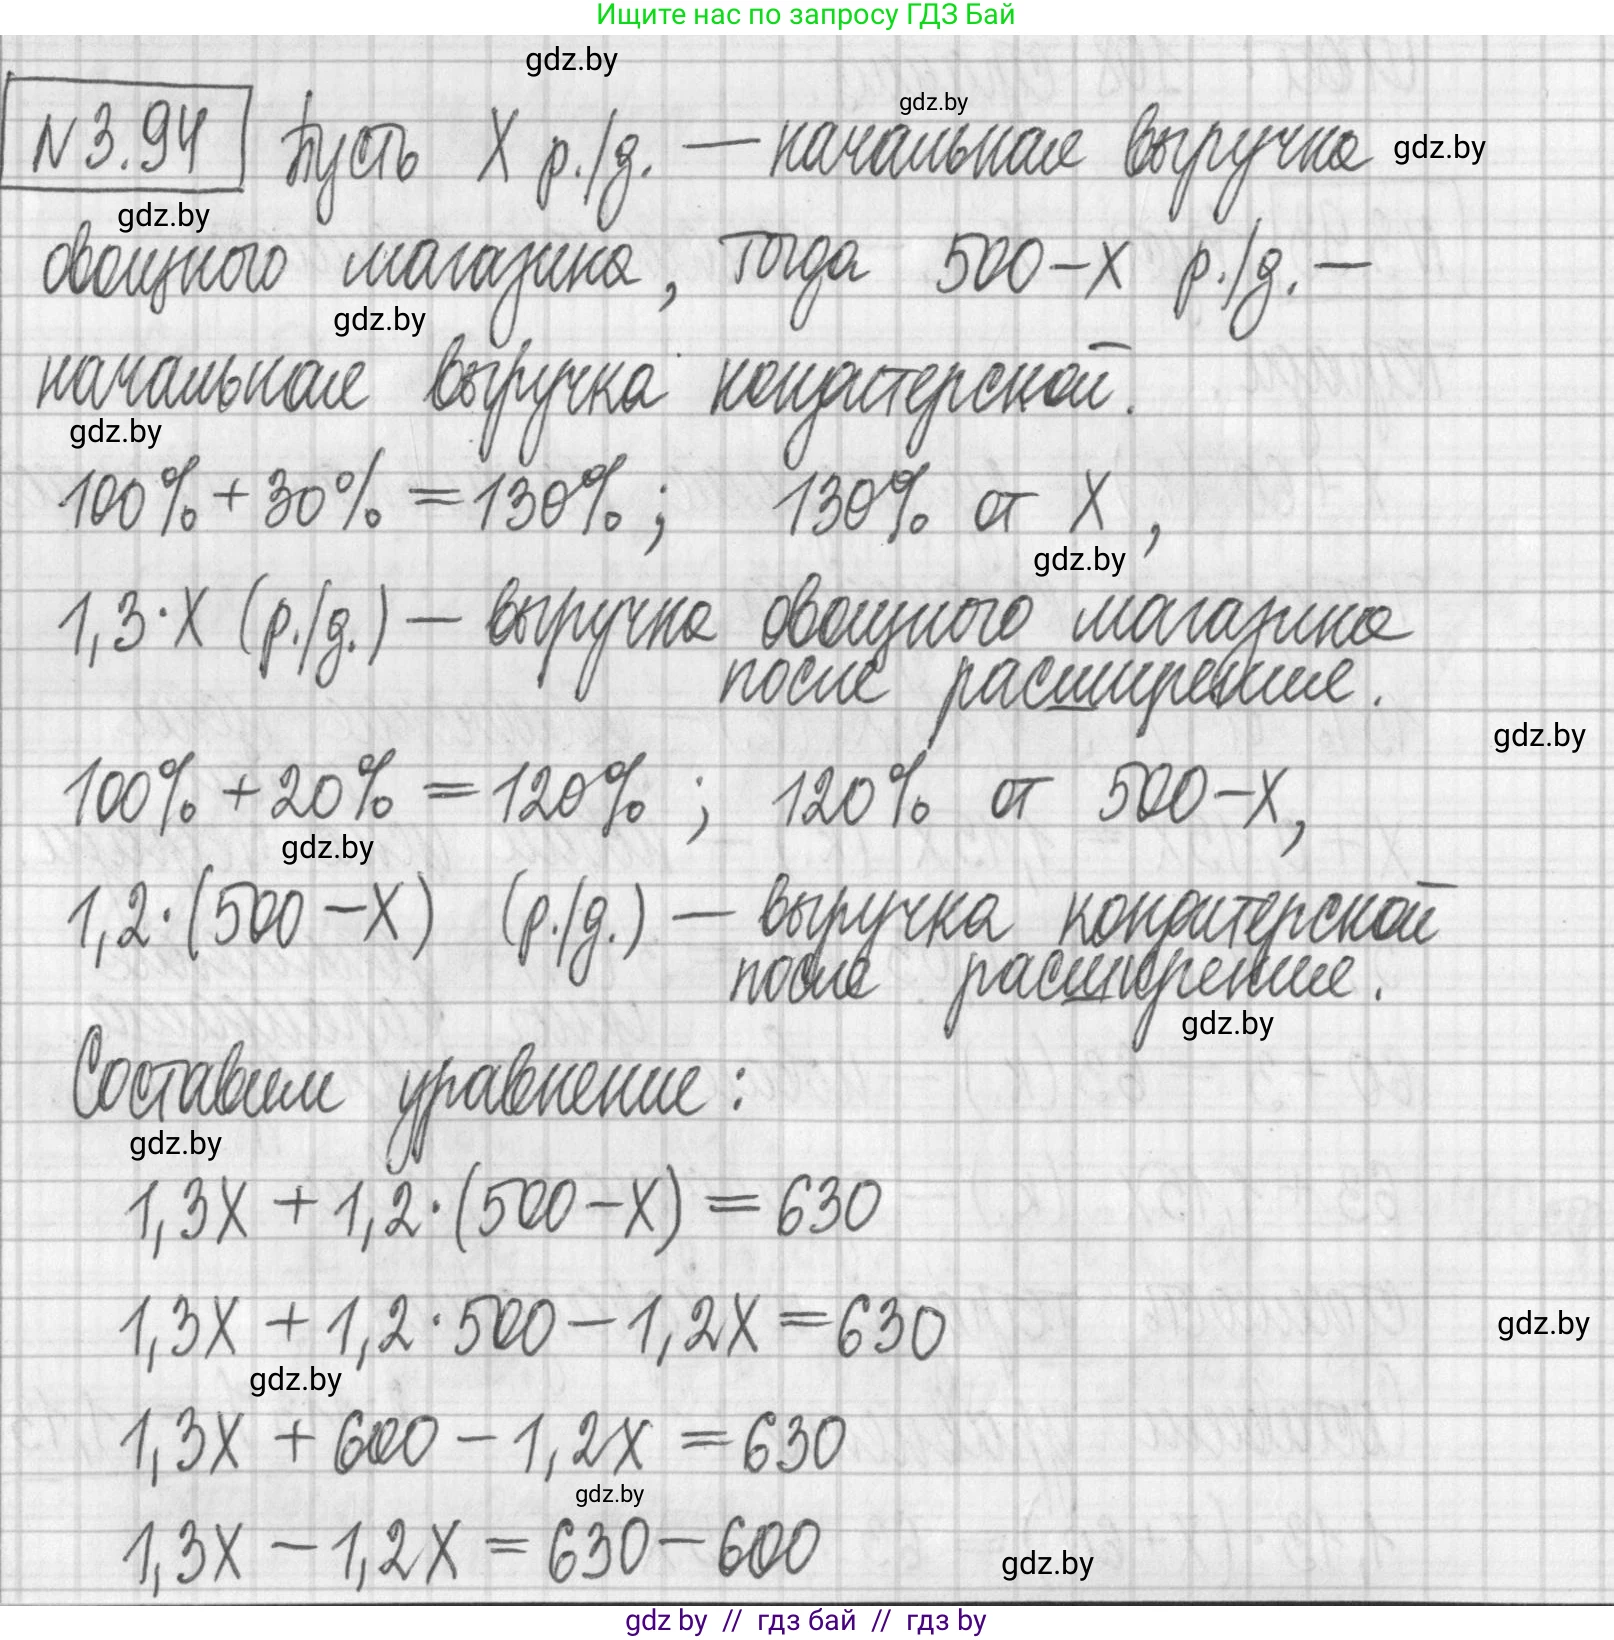 Ищите нас по запросу ГДЗ Бай
gdz.by
gdz.by
N 3.94 Пусть X р./д. — начальная выручка gdz.by
gdz.by
овощного магазина, тогда 500-X р./д. —
gdz.by
начальная выручка кондитерской.
gdz.by
100% + 30% = 130%; 130% от X,
gdz.by
1,3·X (р./д.) — выручка овощного магазина
после расширения.
gdz.by
100% + 20% = 120%; 120% от 500-X,
gdz.by
1,2·(500-X) (р./д.) — выручка кондитерской
после расширения.
gdz.by
Составим уравнение:
gdz.by
1,3X + 1,2·(500-X) = 630
1,3X + 1,2·500 - 1,2X = 630 gdz.by
gdz.by
1,3X + 600 - 1,2X = 630
gdz.by
1,3X - 1,2X = 630 - 600 gdz.by
gdz by // гдз бай // гдз by